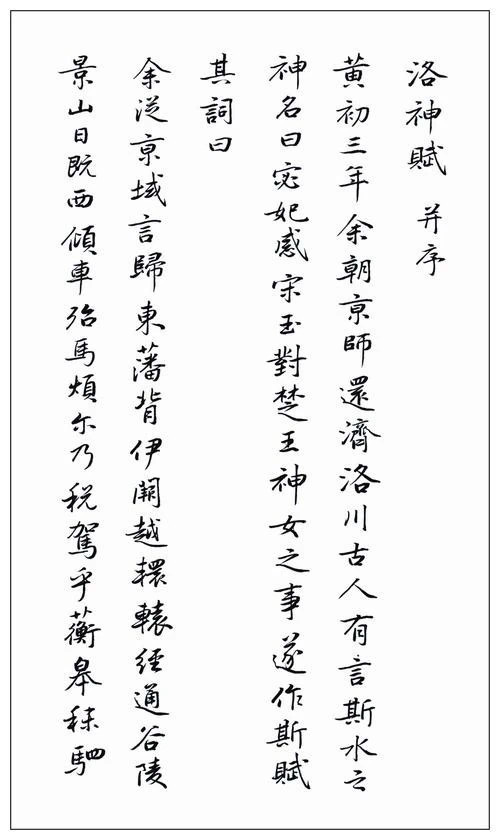 洛神賦 并序
黄初三年余朝亰師還濟洛川古人有言斯水之
神名曰宓妃感宋玉對楚王神女之事遂作斯賦
其詞曰
余従亰域言歸東藩背伊闕越轘轅經通谷陵
景山日既西傾車殆馬煩尔乃税駕乎蘅皋秣駟